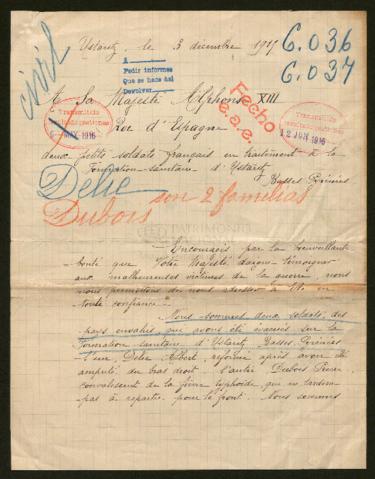 civil
Ustaritz, le 3 décembre 1915
6.036
6.037
A
Pedir informes
Que se hace así
Devolver
A Sa Majesté Alphonse XIII
Roi d'Espagne
Fecho
12 JUN 1916
1916
deux petits soldats français en traitement à la
Formation sanitaire d'Ustaritz
Basses Pyrénées
Delie
Dubois
son 2 familias
Encouragés par la bienveillante
bonté que Votre Majesté daigne témoigner
aux malheureuses victimes de la guerre, nous
nous permettons de nous adresser à Elle en
toute confiance.
Nous sommes deux soldats, des
pays envahis, qui avons été évacués sur la
Formation sanitaire d'Ustaritz Basses Pyrénées
l'un, Delie Albert, réformé après avoir été
amputé du bras droit. l'autre Dubois Pierre,
convalescent de la fièvre typhoïde, qui va tarder
pas à repartir pour le front. Nous sommes